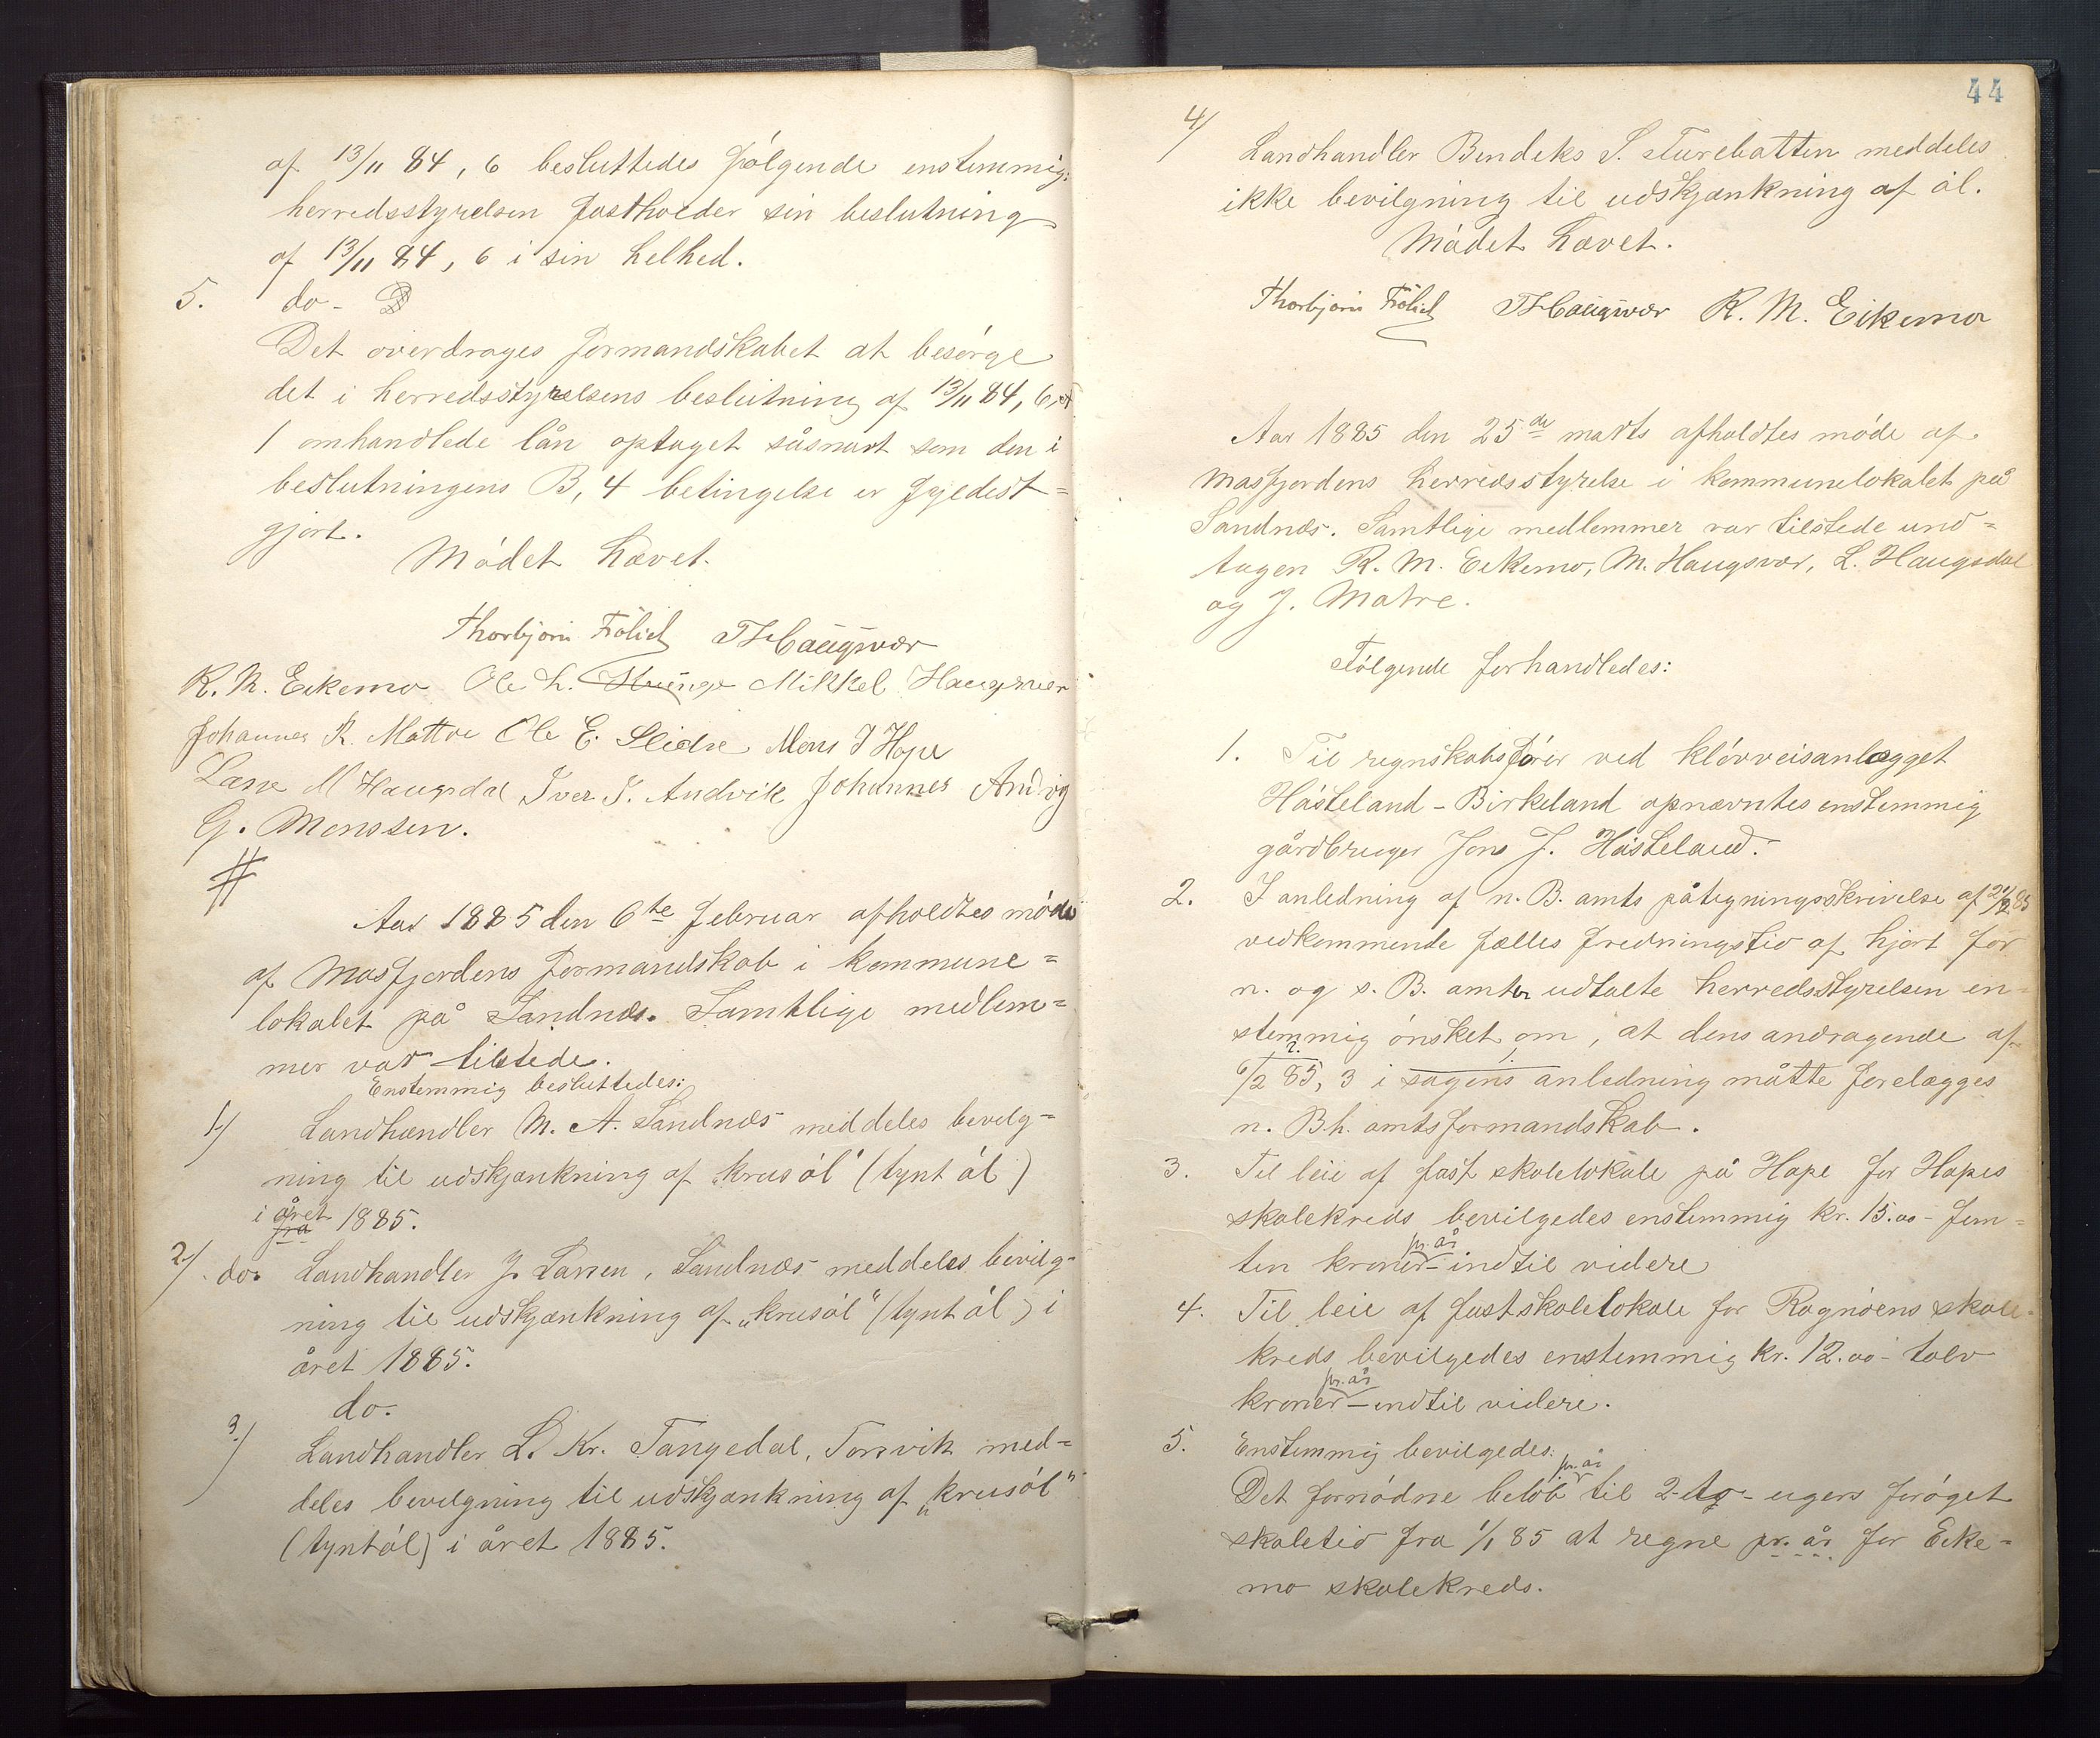 af 13/11 84, 6 besluttedes følgende enstemmig:
herredsstyrelsen fastholder sin beslutning
af 13/11 84, 6 i sin helhed.
5. do-
Det overdrages formandskabet at besørge
det i herredsstyrelsens beslutning af 13/11 84, 6,
1 omhandlede lån optaget såsnart som den i
beslutningens B, 4 betingelse er fyldest=
gjort.
Mödet hævet.
Thorbjørn Frölich T Haugsvær
R. M. Eikemo Ole L. Mikkel Haugsvær
Johannes R. Mattre Ole E. Sleire Mons J Hope
Lasse M Haugsdal Iver I. Andvik Johannes Andvig
G. Monssen.
#
Aar 1885 den 6te februar afholdtes møde
af Masfjordens formandskab i kommune=
lokalet på Sandnæs. Samtlige medlem=
mer var tilstede.
Enstemmig besluttedes:
1.) Landhandler M. A. Sandnæs meddeles bevilg=
ning til udskjænkning af "krusöl" (tynt öl)
i året 1885.
fra
2.) do. Landhandler J. Larsen, Sandnæs meddeles bevilg=
ning til udskjænkning af „krusöl" (tynt öl) i
året 1885.
do.
3.) Landhandler L. Kr. Tangedal, Torsvik med=
deles bevilgning til udskjænkning af „krusöl"
(tyntöl) i året 1885.
44
4/ Landhandler Bendeks S. meddeles
ikke bevilgning til udskjænkning af öl.
Mødet hævet.
Thorbjørn Frölich T Haugsvær R. M. Eikemo
Aar 1885 den 25de marts afholdtes møde af
Masfjordens herredsstyrelse i kommunelokalet på
Sandnæs. Samtlige medlemmer var tilstede und=
tagen R. M. Eikemo, M. Haugsvær, L. Haugsdal
og J. Matre.
Følgende forhandledes:
1. Til regnskabsfører ved kløvveisanlægget
Håsteland - Birkeland opnævntes enstemmig
gårdbruger Jens J. Håsteland.
2. I anledning af n. B. amts påtegningsskrivelse af 21/2 85
vedkommende fælles fredningstid af hjort for
n. og s. B. amter udtalte herredsstyrelsen en=
stemmig ønsket om, at dens andragende af
6/2 85, 3 i sagens anledning måtte forelægges
n. Bh. amtsformandskab.
3. Til leie af fast skolelokale på Hope for Hopes
skolekreds bevilgedes enstemmig kr. 15.00 - fem=
ten kroner - pr. år indtil videre
4. Til leie af fastskolelokale for Ragnøens skole=
kreds bevilgedes enstemmig kr. 12.00 - tolv
kroner pr. år - indtil videre.
5. Enstemmig bevilgedes:
Det fornødne beløb pr. år til 2-to- ugers forøget
skoletid fra 1/1 85 at regne pr. år for Eike=
mo skolekreds.